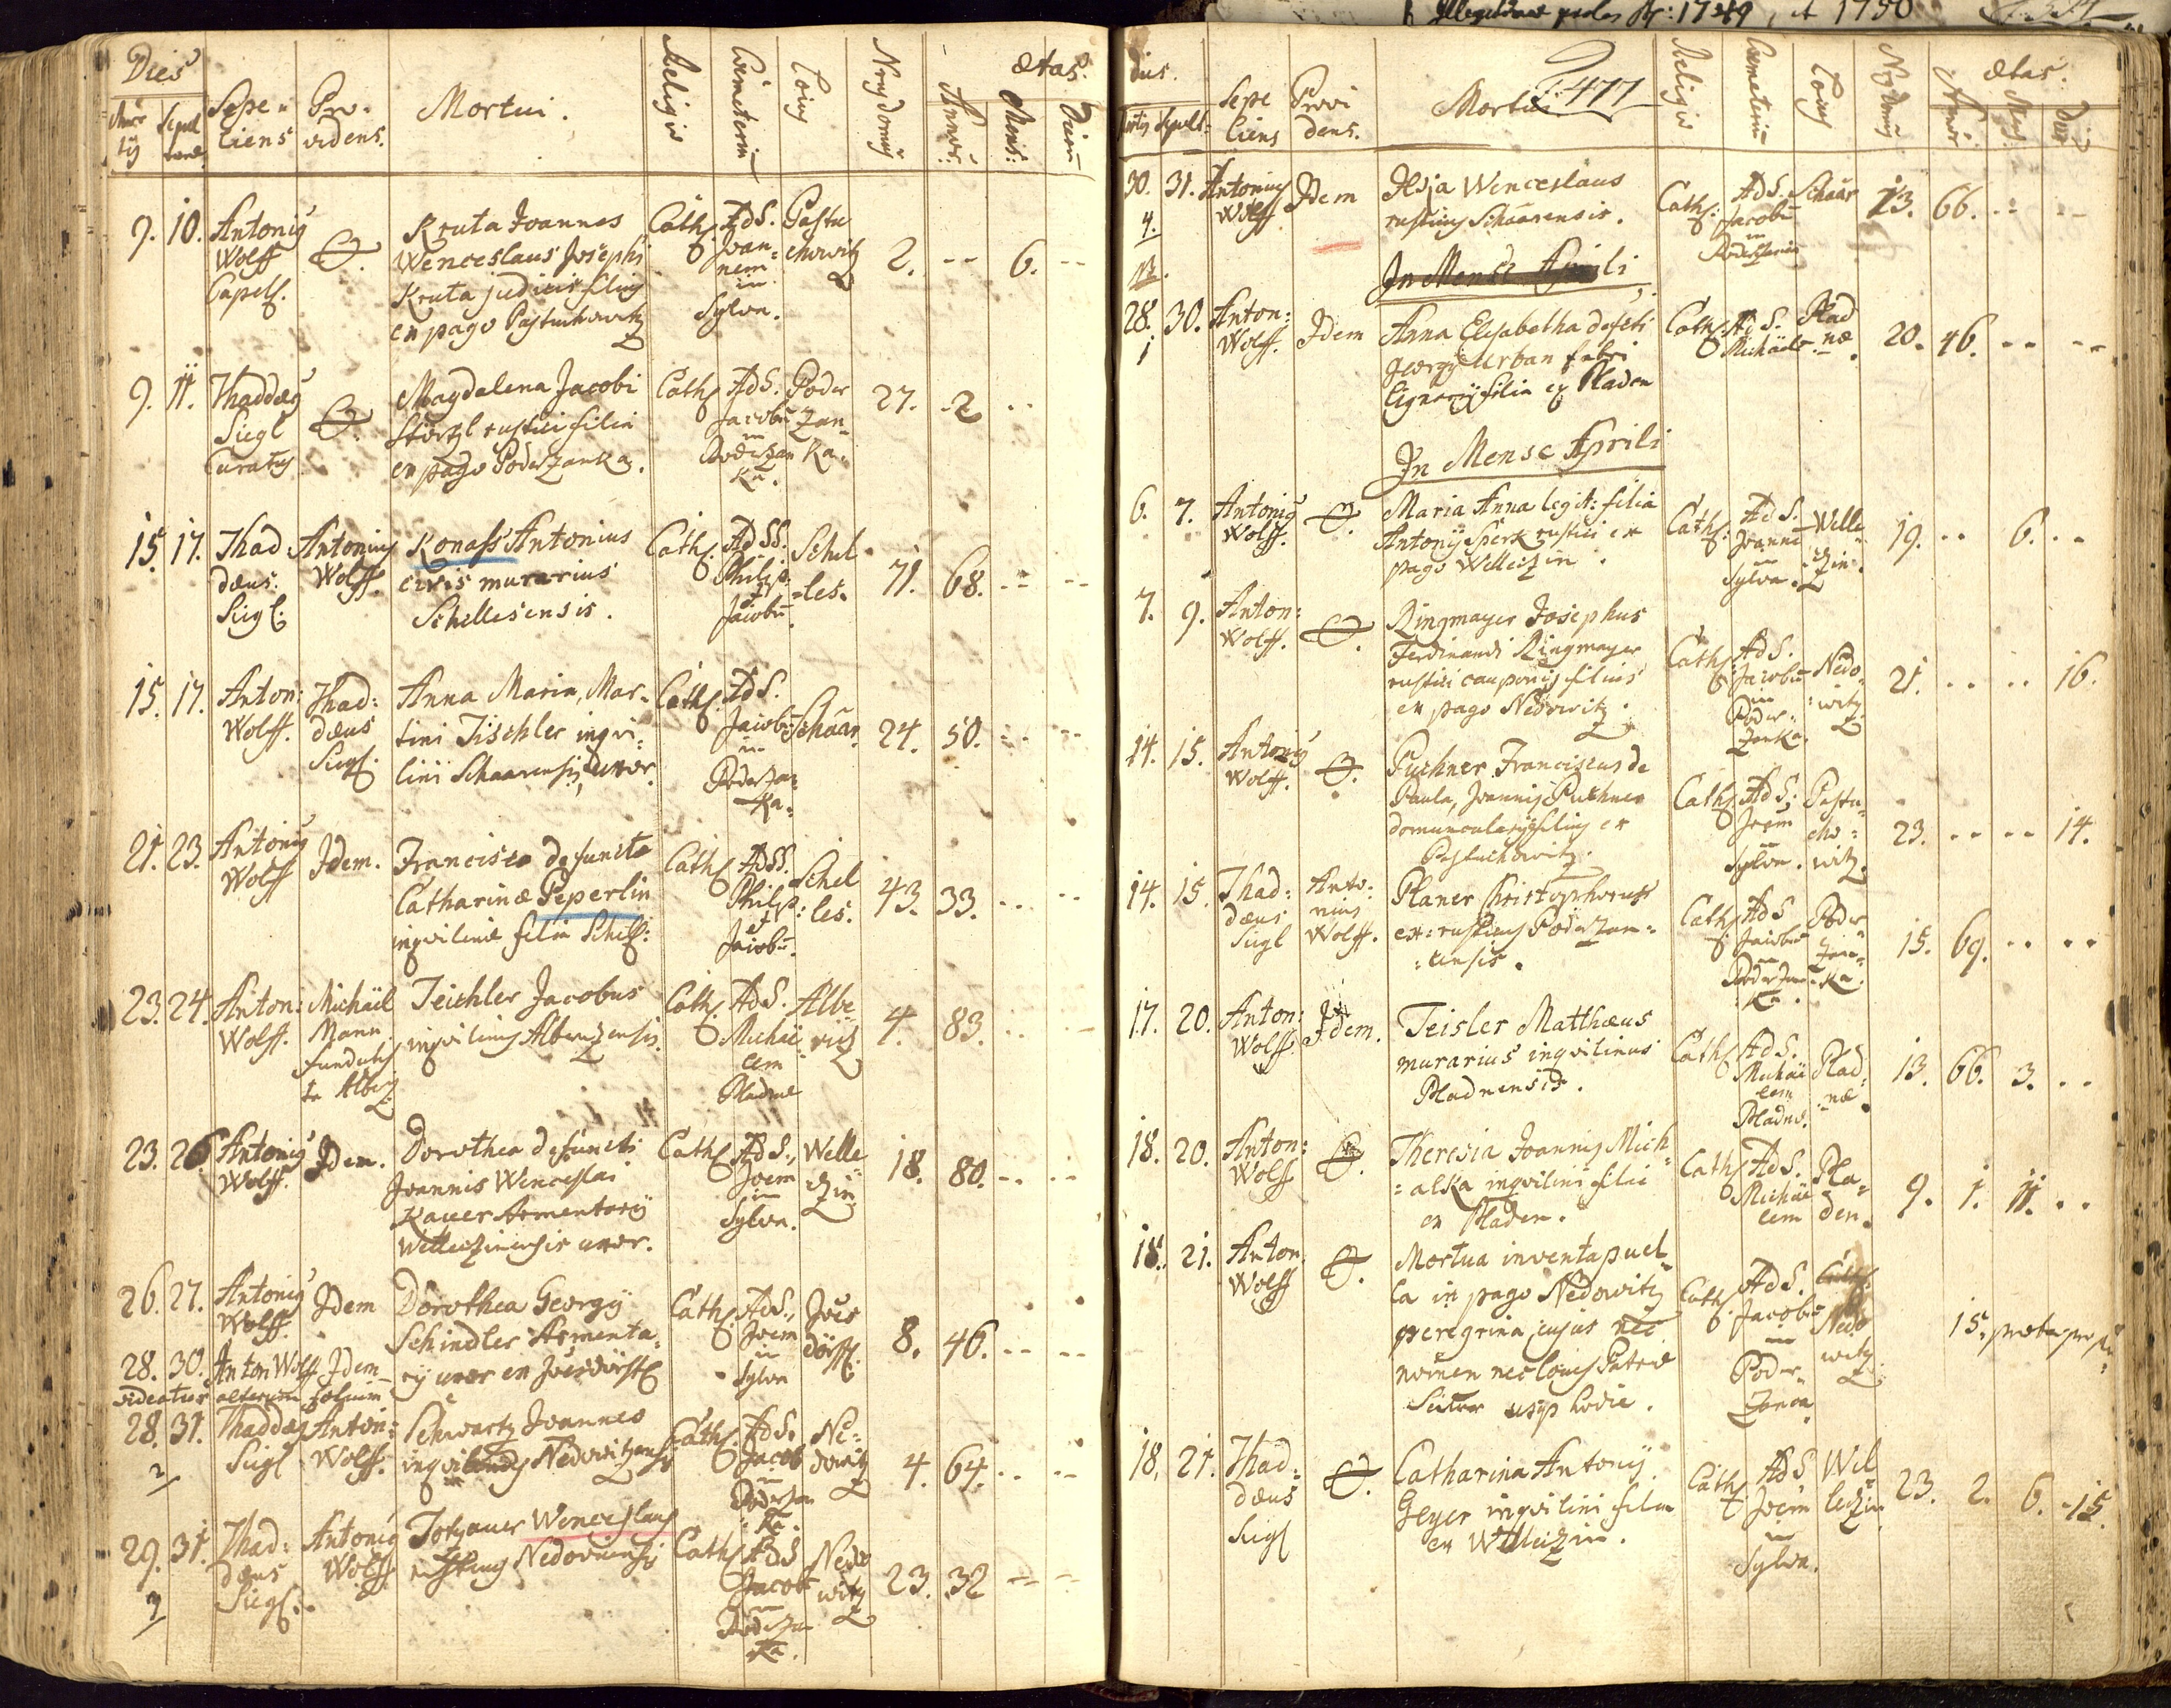 Dies
Sepe-
liens
Pro-
videns.
Mortui.
Religio
Locus
Nrus domus
Ætas.
Annor.
Mens:
Dierum
9. 10. Antonius
Wolff
Capell.
Kruta Joannes
Wenceslaus Josephi
Kruta judicis filius
ex pago Pastuchowitz
Cath. Ad S.
Joan-
nem
in
Sylva.
Pastu
chowitz
2. -- 6. --
9. 11. Thaddæus
Siegl
Curatus
Magdalena Jacobi
rustici filia
ex pago Poderzanka.
Cath. Ad S.
Jacobu
in
Poderzan
Ka.
Poder
Zan-
Ka.
27. 2 ..
15. 17. Thad
dæus:
Siegl.
Antonius
Wolff.
Konass Antonius
civis murarius
Schellesensis.
Cath. Ad SS.
Philip:
et
Jacobu.
Schel
-les.
71. 68. -- --
15. 17. Anton:
Wolff.
Thad:
dæus
Siegl.
Anna Maria, Mar-
tini Tischler inqvi-
lini Schaarensis, uxor.
Cath. Ad S.
Jacobu
in
Poderzan-
Ka.
Schaar.
24. 50. -- --
21. 23. Antonius
Wolff
Idem.
Francisca defuncta
Catharinæ Peperlin
inqvilinæ filia Schell:
Cath. Ad SS.
Philip:
et
Jacobu.
Schel
les.
43. 33. .. --
23. 24. Anton:
Wolff.
Michäel
Mann
Teichler Jacobus
inqvilinus
Cath. Ad S.
Michäe
lem
Pladnæ
Albe
ritz
4. 83. .. -
23. 26 Antonius
Wolff.
Idem.
Dorothea defuncti
Joannis Wenceslai
Kauer Armentarij
Welleczinensis uxor.
Cath. Ad S.
Joem
in
Sylva.
Welle
czin
18. 80. .. ..
26. 27. Antonius
Wolff.
Idem
Dorothea Georgij
Schindler Armenta-
rij uxor ex
Cath. Ad S.
Joem
in
Sylva
8. 46. -- --
28. 30. Anton Wolff Idem
videatur alterum folium
28. 31. Thaddæus
Siegl
Anton:
Wolff.
2
Schwartz Joannes
Nedowitzensis
Cath. Ad S.
Jacob
in
Poderzan
Ka.
Ne:
dowitz
4. 64. .. --
29. 31. Thad:
dæus
Siegl.
Antonius
Wolff
3
Totzauer Wenceslaus
rusticus
Cath. Ad S
Jacob
in
Poderzan
Ka.
Nedo
witz
23. 32 -- --
1749, et 1750
Dies.
Sepe
liens
Provi
dens.
Mortui
F. 477
Religio
Locus
Nrus domus
Ætas.
Annor.
Mens.
30. 31. Antonius
Wolff
Idem
4.
Wenceslaus
rusticus Schaarensis.
Cath: Ad S.
Jacobu
in
Schaar
13. 66. .. ..
In Mense Aprili
28. 30. Anton:
Wolff.
Idem
1
Anna Elisabetha defcti
Georgij Urban fabri
lignarij filia ex Pladen
Cath: Ad S.
Michäele.
Plad
næ
20. 46. .. ..
In Mense Aprili
6. 7. Antonius
Wolff.
Maria Anna legit: filia
Antonij Sperk rustici ex
pago Welleczin.
Cath: Ad S.
Joanne
in
Sylva.
Welle-
czin.
19. .. 6. ..
7. 9. Anton:
Wolff.
Ringmayer Josephus
Ferdinandi Ringmayer
rustici cauponis filius
ex pago Nedowitz.
Cath. Ad S.
Jacobu
in
Poder-
Zanka.
Nedo-
witz
21. .. .. 16.
14. 15. Antonius
Wolff.
Puchner Franciscus de
Paula, Joannis Puchner
domuncularij filius ex
Pastuchowitz.
Cath. Ad S.
Joem
in
Sylva.
Pastu-
cho-
witz.
23. .. .. 14.
14. 15. Thad:
dæus
Siegl
Anto:
nius
Wolff.
Planer Christophorus
ex: rusticus Poderzan-
censis.
Cath. Ad S
Jacobu
in
Poderzan-
Ka.
Poder-
Zan-
Ka.
15. 69. .. ..
17. 20. Anton:
Wolff.
Idem.
Teisler Matthæus
murarius inqvilinus
Pladnensis.
Cath. Ad S.
Michäe
lem
Pladnæ.
Plad-
næ.
13. 66. 3. ..
18. 20. Anton:
Wolff
Theresia Joannis Mich-
=alka inqvilini filia
ex Pladen.
Cath. Ad S.
Michäe
lem
Pla-
den.
9. 1. 11. ..
18. 21. Anton.
Wolff
Mortua inventa puel-
la in pago Nedowitz
peregrina cujus nec
nomen nec locus Patriæ
Scitur usqs hodie.
Cath. Ad S.
Jacobu
in
Poder-
Zanca.
Nedo
witz
15.
18. 21. Thad:
dæus
Siegl
Catharina Antonij
Geyer inqvilini filia
ex Welleczin.
Cath. Ad S
Joem
in
Sylva.
Wel
leczin
23. 2. 6. 15.